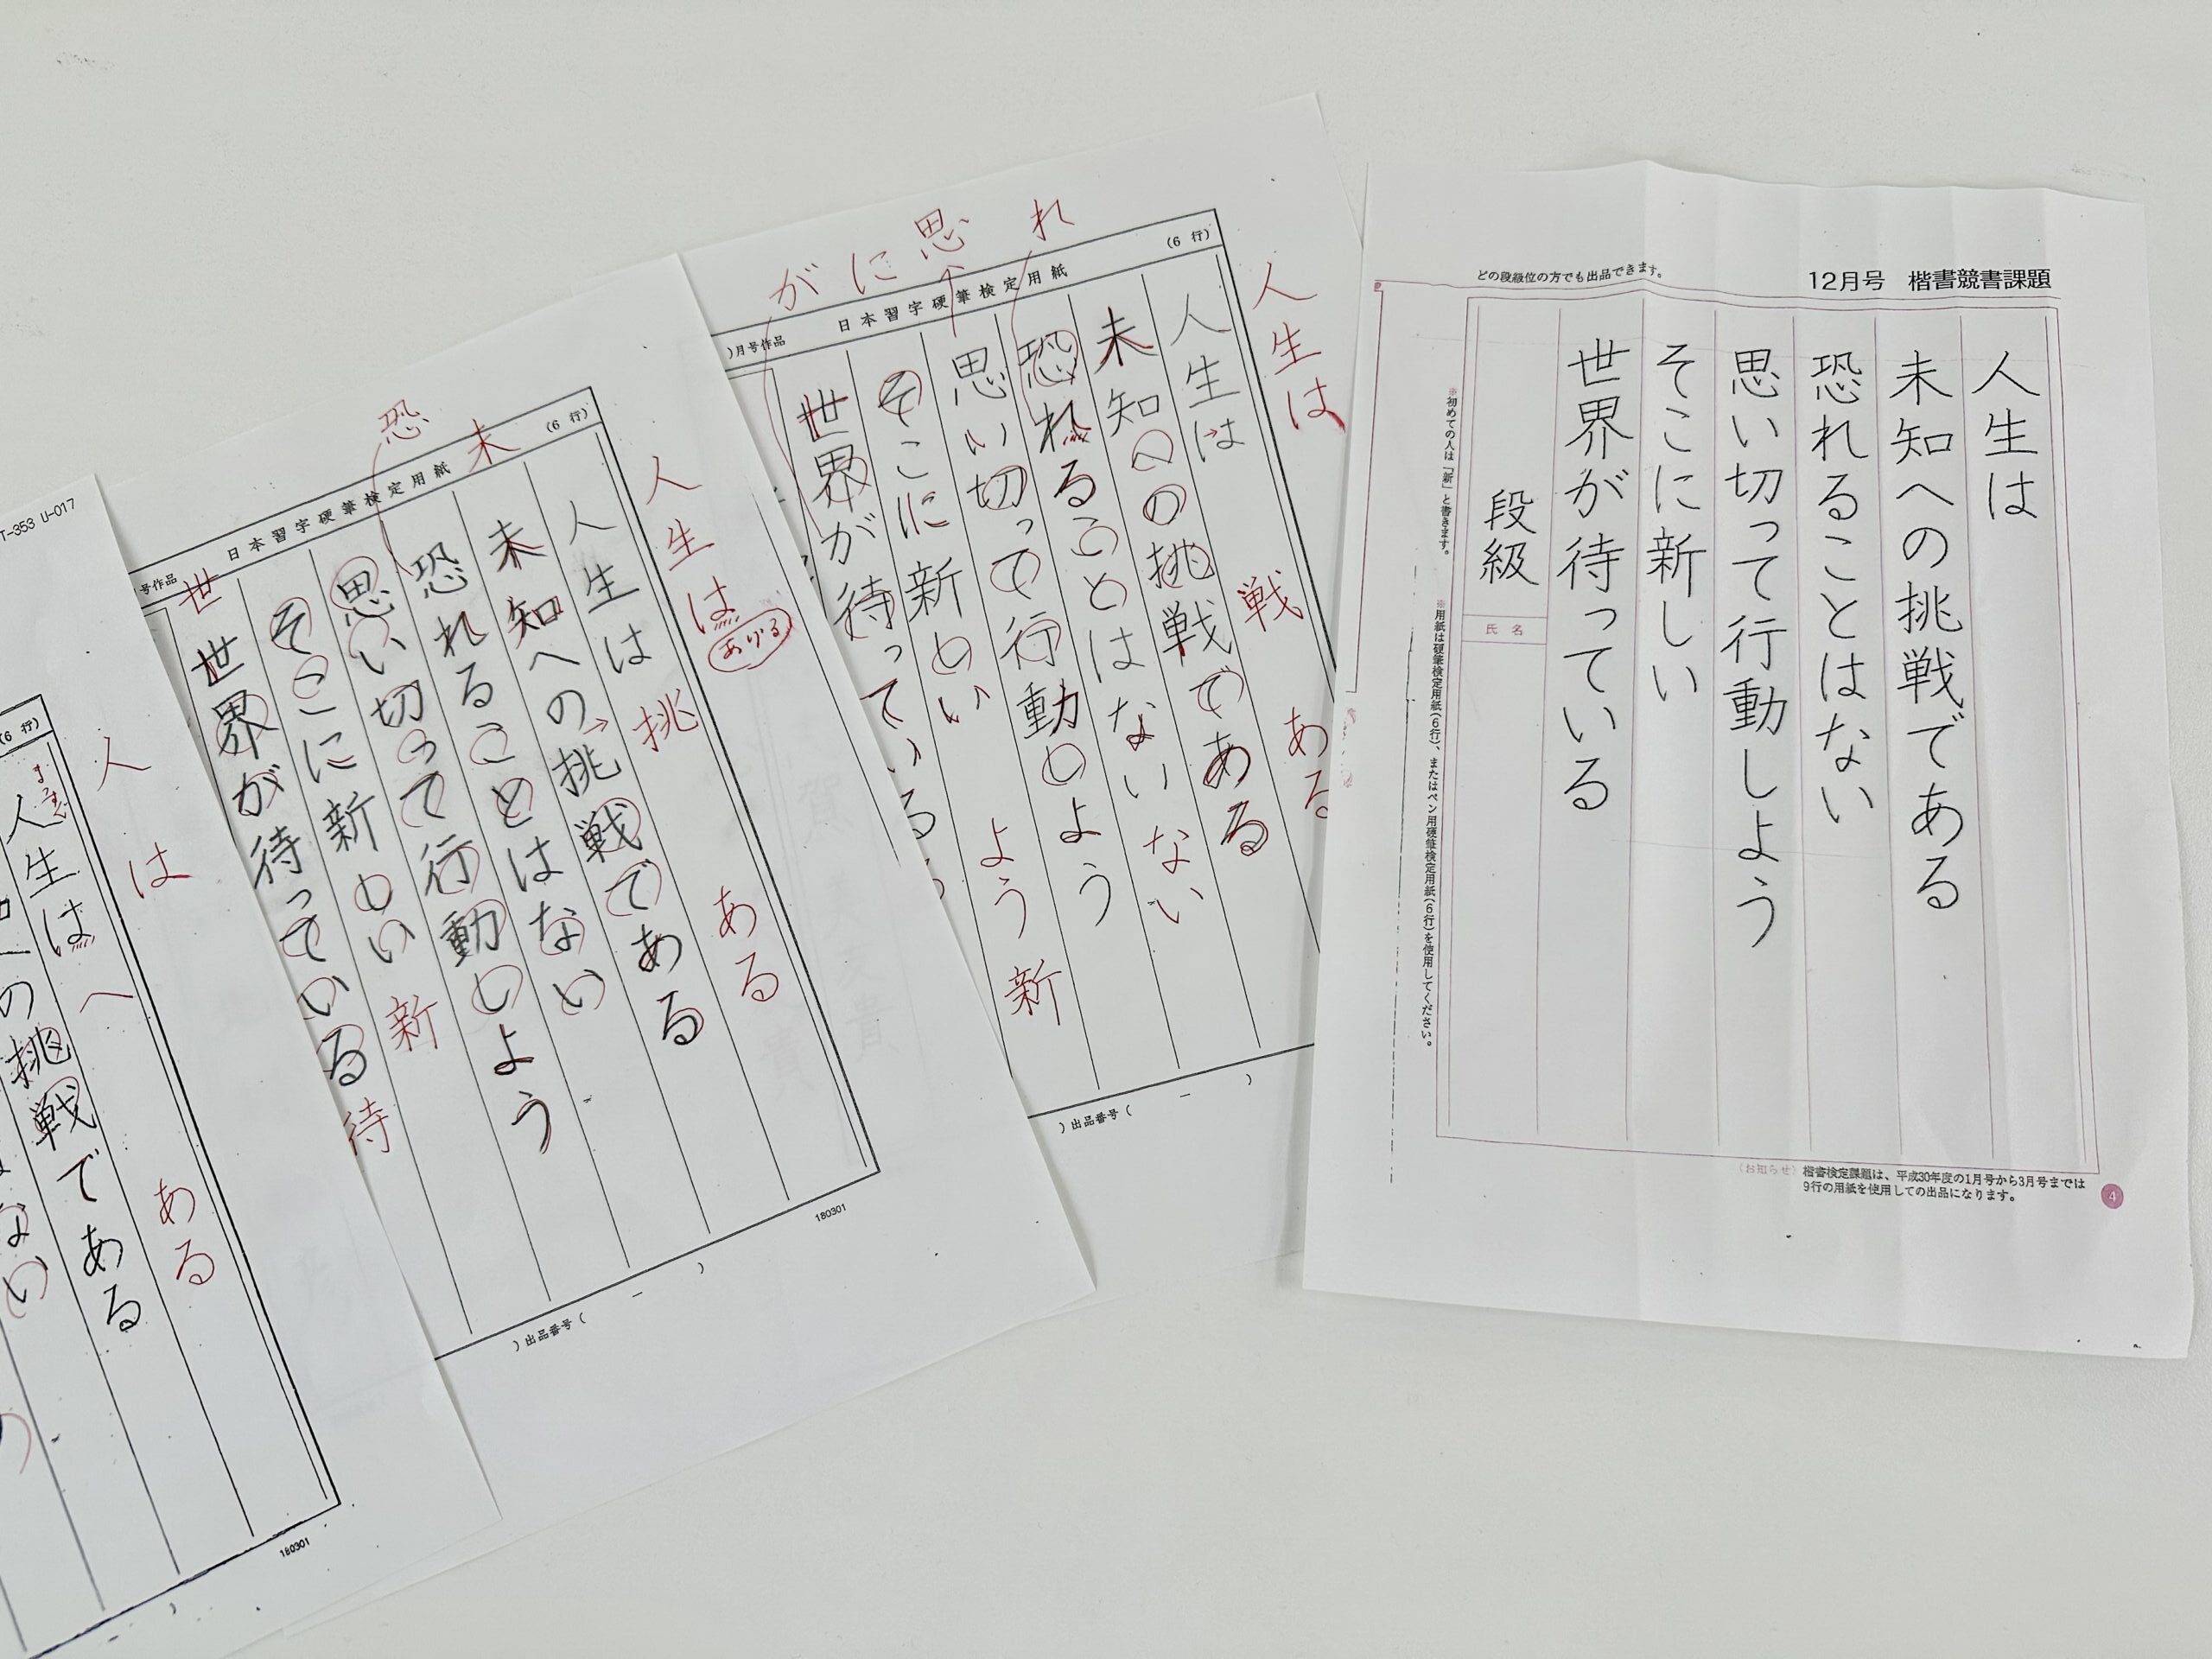 どの段級位の方でも出品できます。
12月号 楷書競書課題
人生は
未知への挑戦である
恐れることはない
思い切って行動しよう
そこに新しい
世界が待っている
段級
氏名
※初めての人は「新」と書きます。
※用紙は硬筆検定用紙(6行)、またはペン用硬筆検定用紙(6行)を使用してください。
(お知らせ) 楷書検定課題は、平成30年度の1月号から3月号までは
9行の用紙を使用しての出品になります。
4
がに思 れ
(6 行)
日本習字硬筆検定用紙
)月号作品
人生は
戦
ある
人生は
未知への挑戦である
恐れることはない
ない
思い切って行動しよう
よう
そこに新しい
新
世界が待っている
)出品番号( ー )
恐 未
(6 行)
日本習字硬筆検定用紙
号作品
人生は
あける
挑
ある
人生は
未知への挑戦である
恐れることはない
思い切って行動しよう
そこに新しい
新
世
世界が待っている
待
)出品番号( ー )
180301
T-353 U-017
(6 行)
人は
へ
ある
人生は
の挑戦である
ない
)
180301